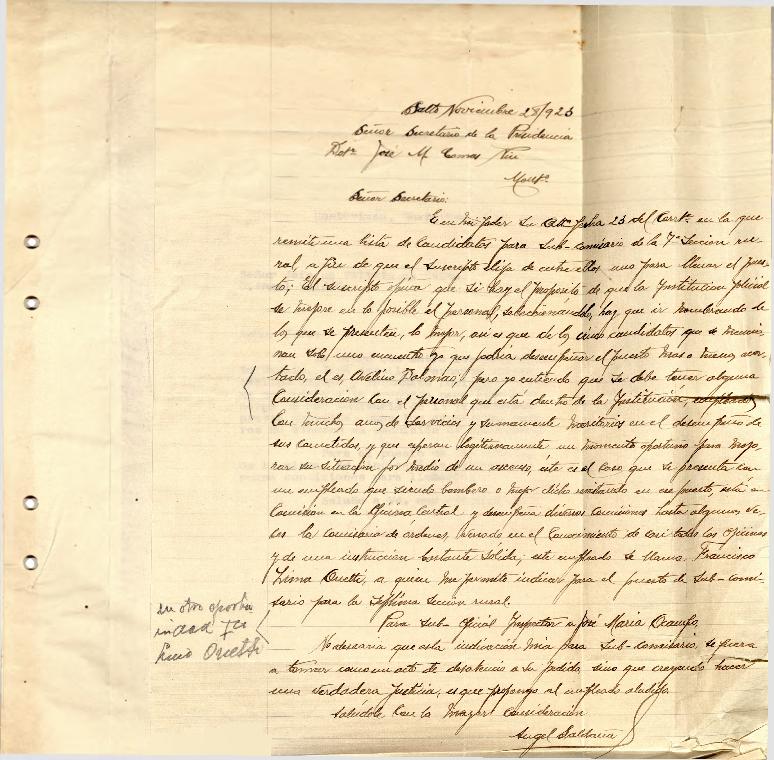 Salto Noviembre 28/925
Señor Secretario de la Presidencia
José M Comas Nin
Montº
Señor Secretario:
En mi poder su fecha 25 del Corrte. en la que
remite una lista de Candidatos para Sub-comisario de la 7ª Seccion ru-
ral, a fin de que el suscripto elija de entre ellos uno para llenar el pues-
to; El suscripto opina que si hay el propósito de que la Institucion policial
se mejore en lo posible el personal, seleccionándolo, hay que ir nombrando de
los que se presenten, lo mejor, asi es que de los cinco candidatos que se mencio-
nan solo uno encuentro yo que podria desempeñar el puesto mas o menos acer-
tado, el es, Avelino Dalmao; pero yo entiendo que se debe tener alguna
Consideracion con el personal que está dentro de la Institución, empleados
con muchos anos de servicios y sumamente meritorios en el desempeño de
sus cometidos, y que esperan legitimamente un momento oportuno para mejo-
rar su situación por medio de un ascenso, éste es el caso que se presenta con
un empleado que siendo bombero o mejor dicho revistando en ese puesto, está en
Comision en la Oficina Central y desempeña diversas comisiones hasta algunas ve-
ces la comisaria de órdenes, versado en el Conocimiento de casi todas las oficinas
y de una instruccion bastante sólida; este empleado se llama Francisco
Lima Onetti, a quien me permito indicar para el puesto de Sub-comi-
sario para la Séptima Seccion rural.
Para Sub Oficial Inspector a José Maria Ocampo,
No desearia que esta indicación mia para Sub-comisario, se fuera
a tomar como un acto de desatencio a su pedido, sino que creyendo hacer
una verdadera justicia, es que propongo al empleado aludido
Salúdole con la mayor Consideracion
Angel Saldaña
en otra oportu
nidad
Onetti